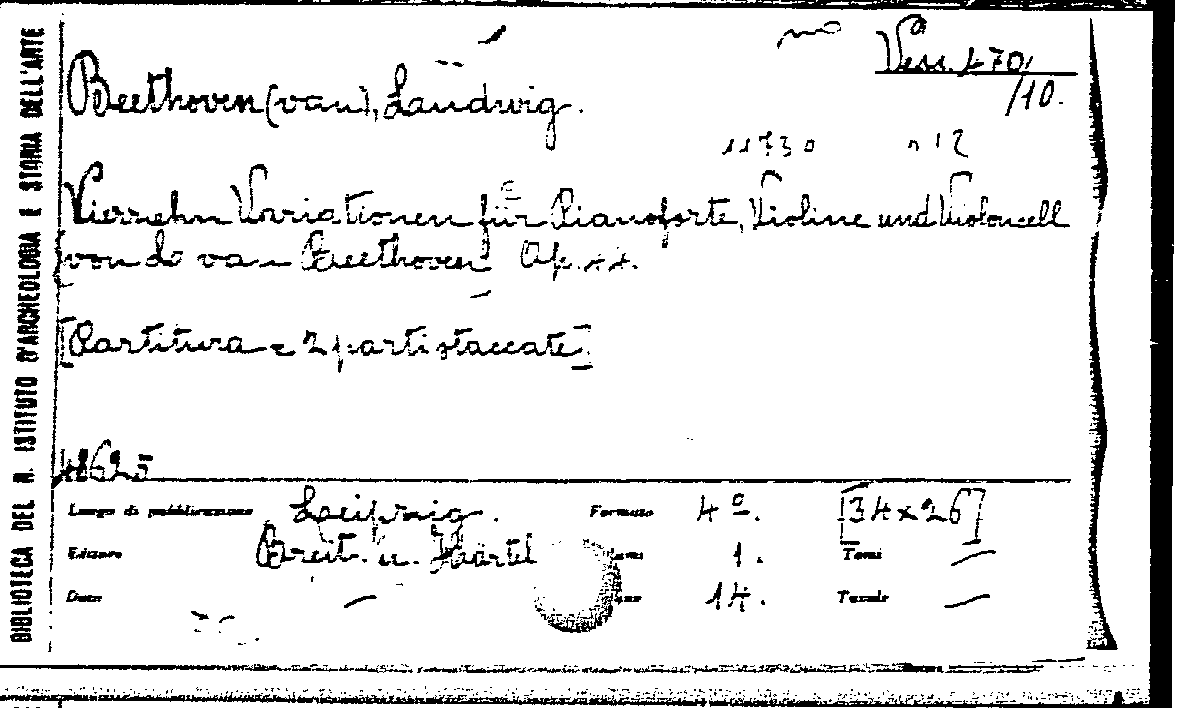 BIBLIOTECA DEL R. ISTITUTO D'ARCHEOLOGIA E STORIA DELL'ARTE
Vess. 470/
/10.
Beethoven (van), Landwig.
11730 n 12
Vierzehn Variationen für Pianoforte, Violine und Violoncell
[von L. van Beethoven] Op. 44.
[Partitura e 2 parti staccate]
48625
Luogo di pubblicazione Leipzig. Formato 4º. [34x26]
Editore Breit. u. Härtel 1. Tomi —
Data — 14. Tavole —